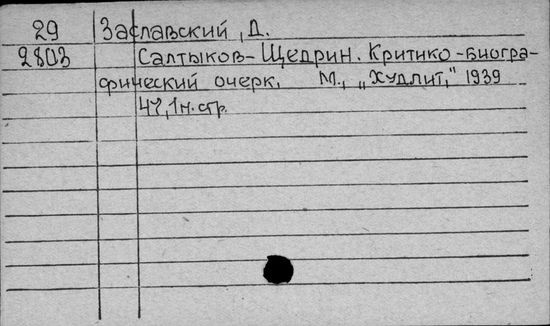 29 Заславский, Д.
2803 Салтыков-Щедрин. Критико-биогра-
фический очерк. М., „Худлит," 1939
47, 1н.стр.